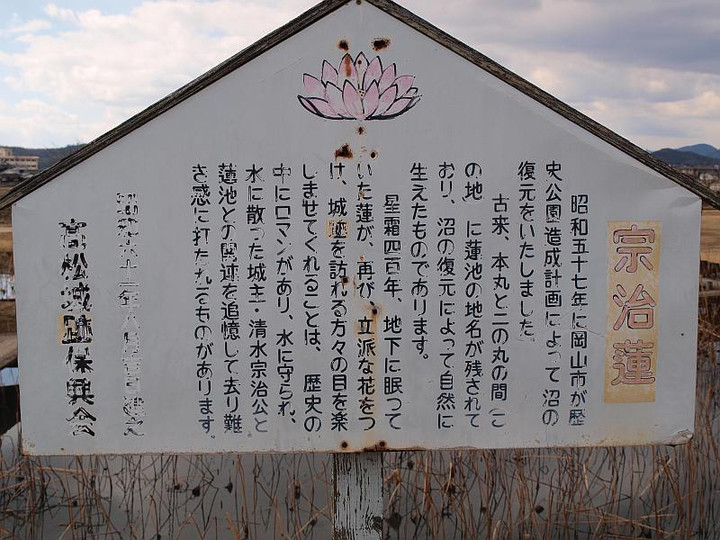 宗治蓮
昭和五十七年に岡山市が歴
史公園造成計画によって沼の
復元をいたしました。
古来、本丸と二の丸の間（こ
の地 に蓮池の地名が残されて
おり、沼の復元によって自然に
生えたものであります。
星霜四百年、地下に眠って
いた蓮が、再び、立派な花をつ
け、城跡を訪れる方々の目を楽
しませてくれることは、歴史の
中にロマンがあり、水に守られ、
水に散った城主・清水宗治公と
蓮池との関連を追憶して去り難
き感に打たれるものがあります。
高松城跡保興会